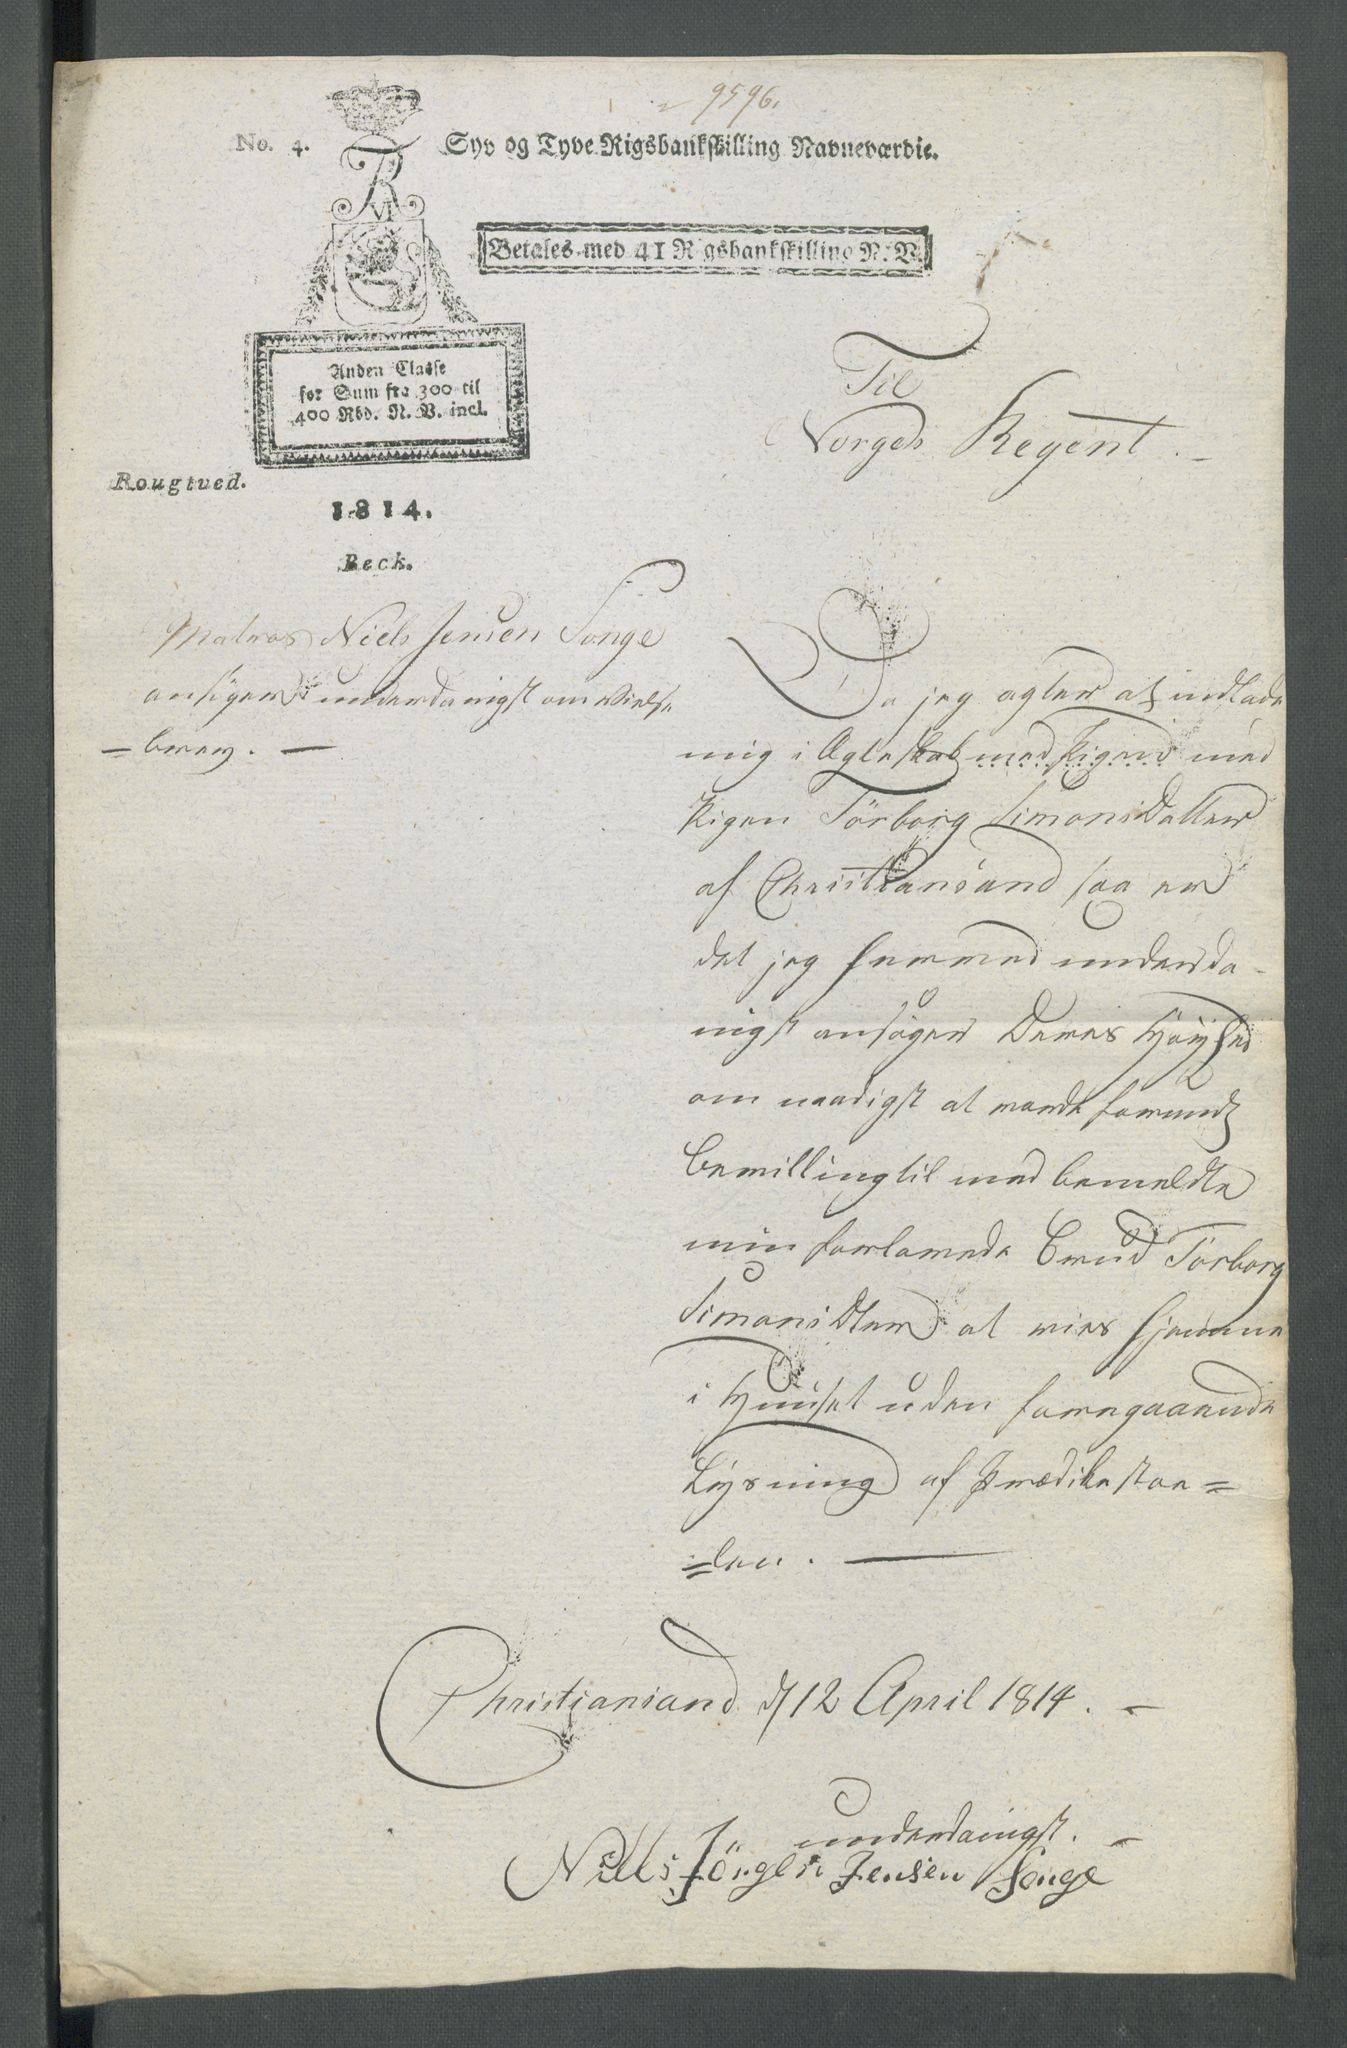 9596.
No. 4. Syv og Tyve Rigsbankskilling Navneværdie.
FR VI
Betales med 41 Rigsbankskilling N. V.
Anden Classe
for Sum fra 300 til
400 Rbd. N. V. incl.
Rougtued.
1814.
Beck.
Til
Norges Regent.
Matros Niels Jensen Songe
ansøger underdanigst om Vielse
brev.
Da jeg agter at indlade
mig i Ægteskab med Pigen med
Pigen Törborg Simons Datter
af Christiansand saa er
det jeg hermed underda-
nigst ansøger Deres Høyhed
om naadigst at vorde forundt
bevilling til med bemeldte
min forlovede Brud Törborg
Simons Dtter at vies hjemme
i Huuset uden foregaaende
Lysning af Prædikestoe=
=len.
Christiansand d 12 April 1814.
underdanigst.
Niels Jörgen Jensen Songe